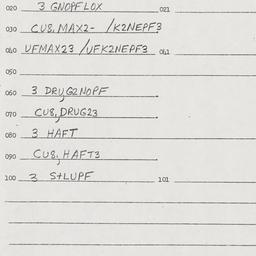 020 3 GNOPFLOX 021
030 CU8, MAX2- /K2NEPF3
040 UFMAX23 /UFK2NEPF3 041
050
060 3 DRUG2NOPF
070 CU8, DRUG23
080 3 HAFT
090 CU8, HAFT3
100 3 S+LUPF 101